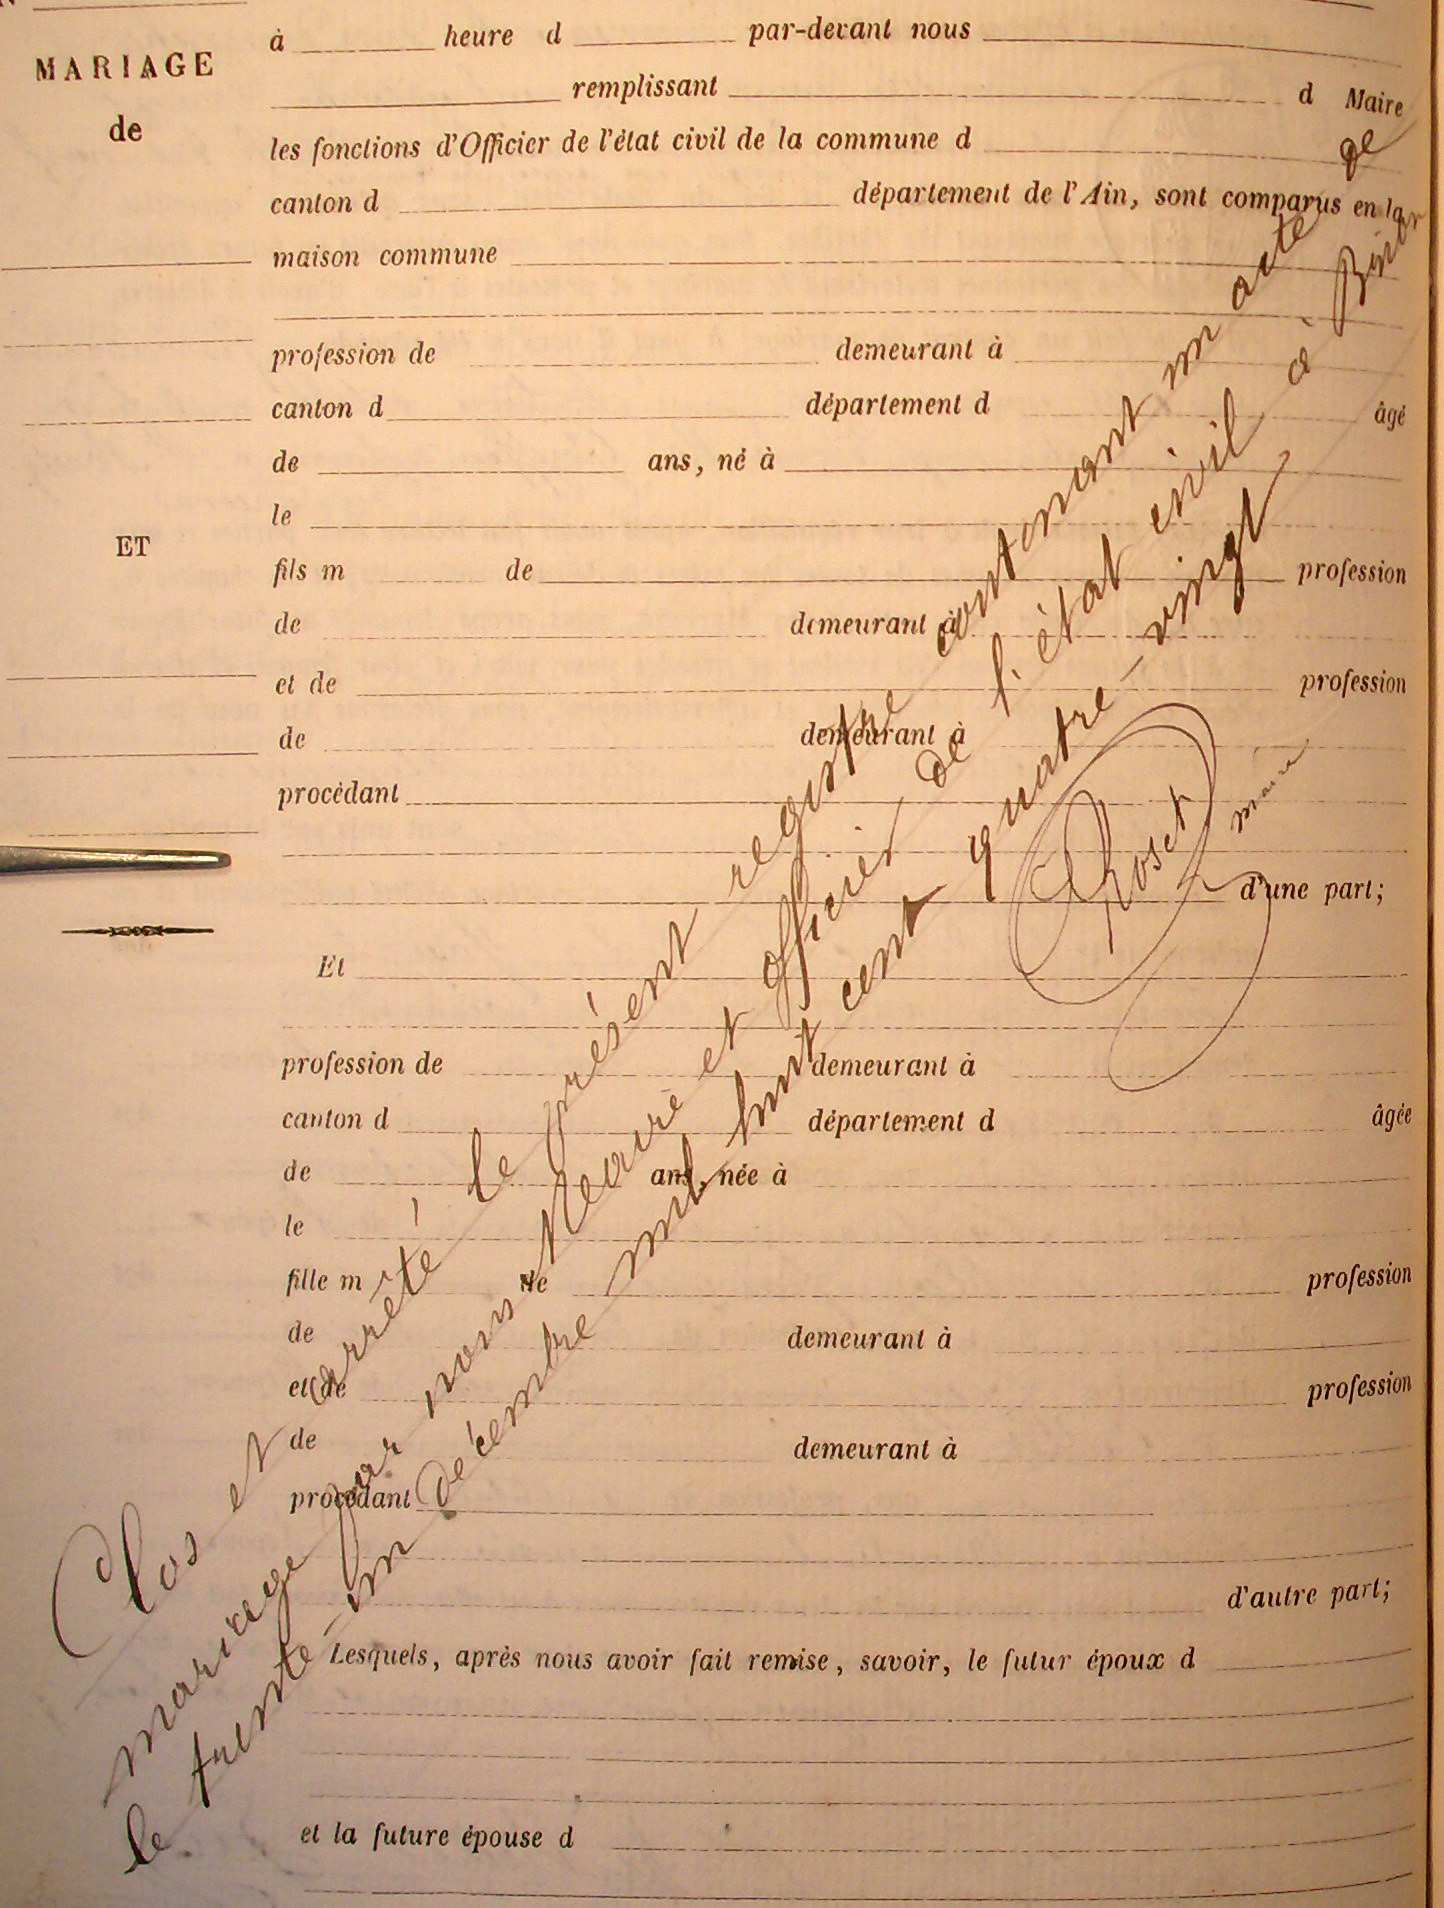 MARIAGE
de
ET
à heure d par-devant nous
remplissant d Maire
les fonctions d'Officier de l'état civil de la commune d
canton d département de l'Ain, sont comparus en la
maison commune
profession de demeurant à
canton d département d âgé
de ans, né à
le
fils m de profession
de demeurant à
et de profession
de demeurant à
procédant
d'une part;
Et
profession de demeurant à
canton d département d âgée
de ans, née à
le
fille m de profession
de demeurant à
et de profession
de demeurant à
procédant
d'autre part;
Lesquels, après nous avoir fait remise, savoir, le futur époux d
et la future épouse d
Clos et arrêté le présent registre contenant un acte de
mariage par nous Maire et officier de l'état civil à
le trente-un décembre mil huit cent quatre-vingt
Roset
maire